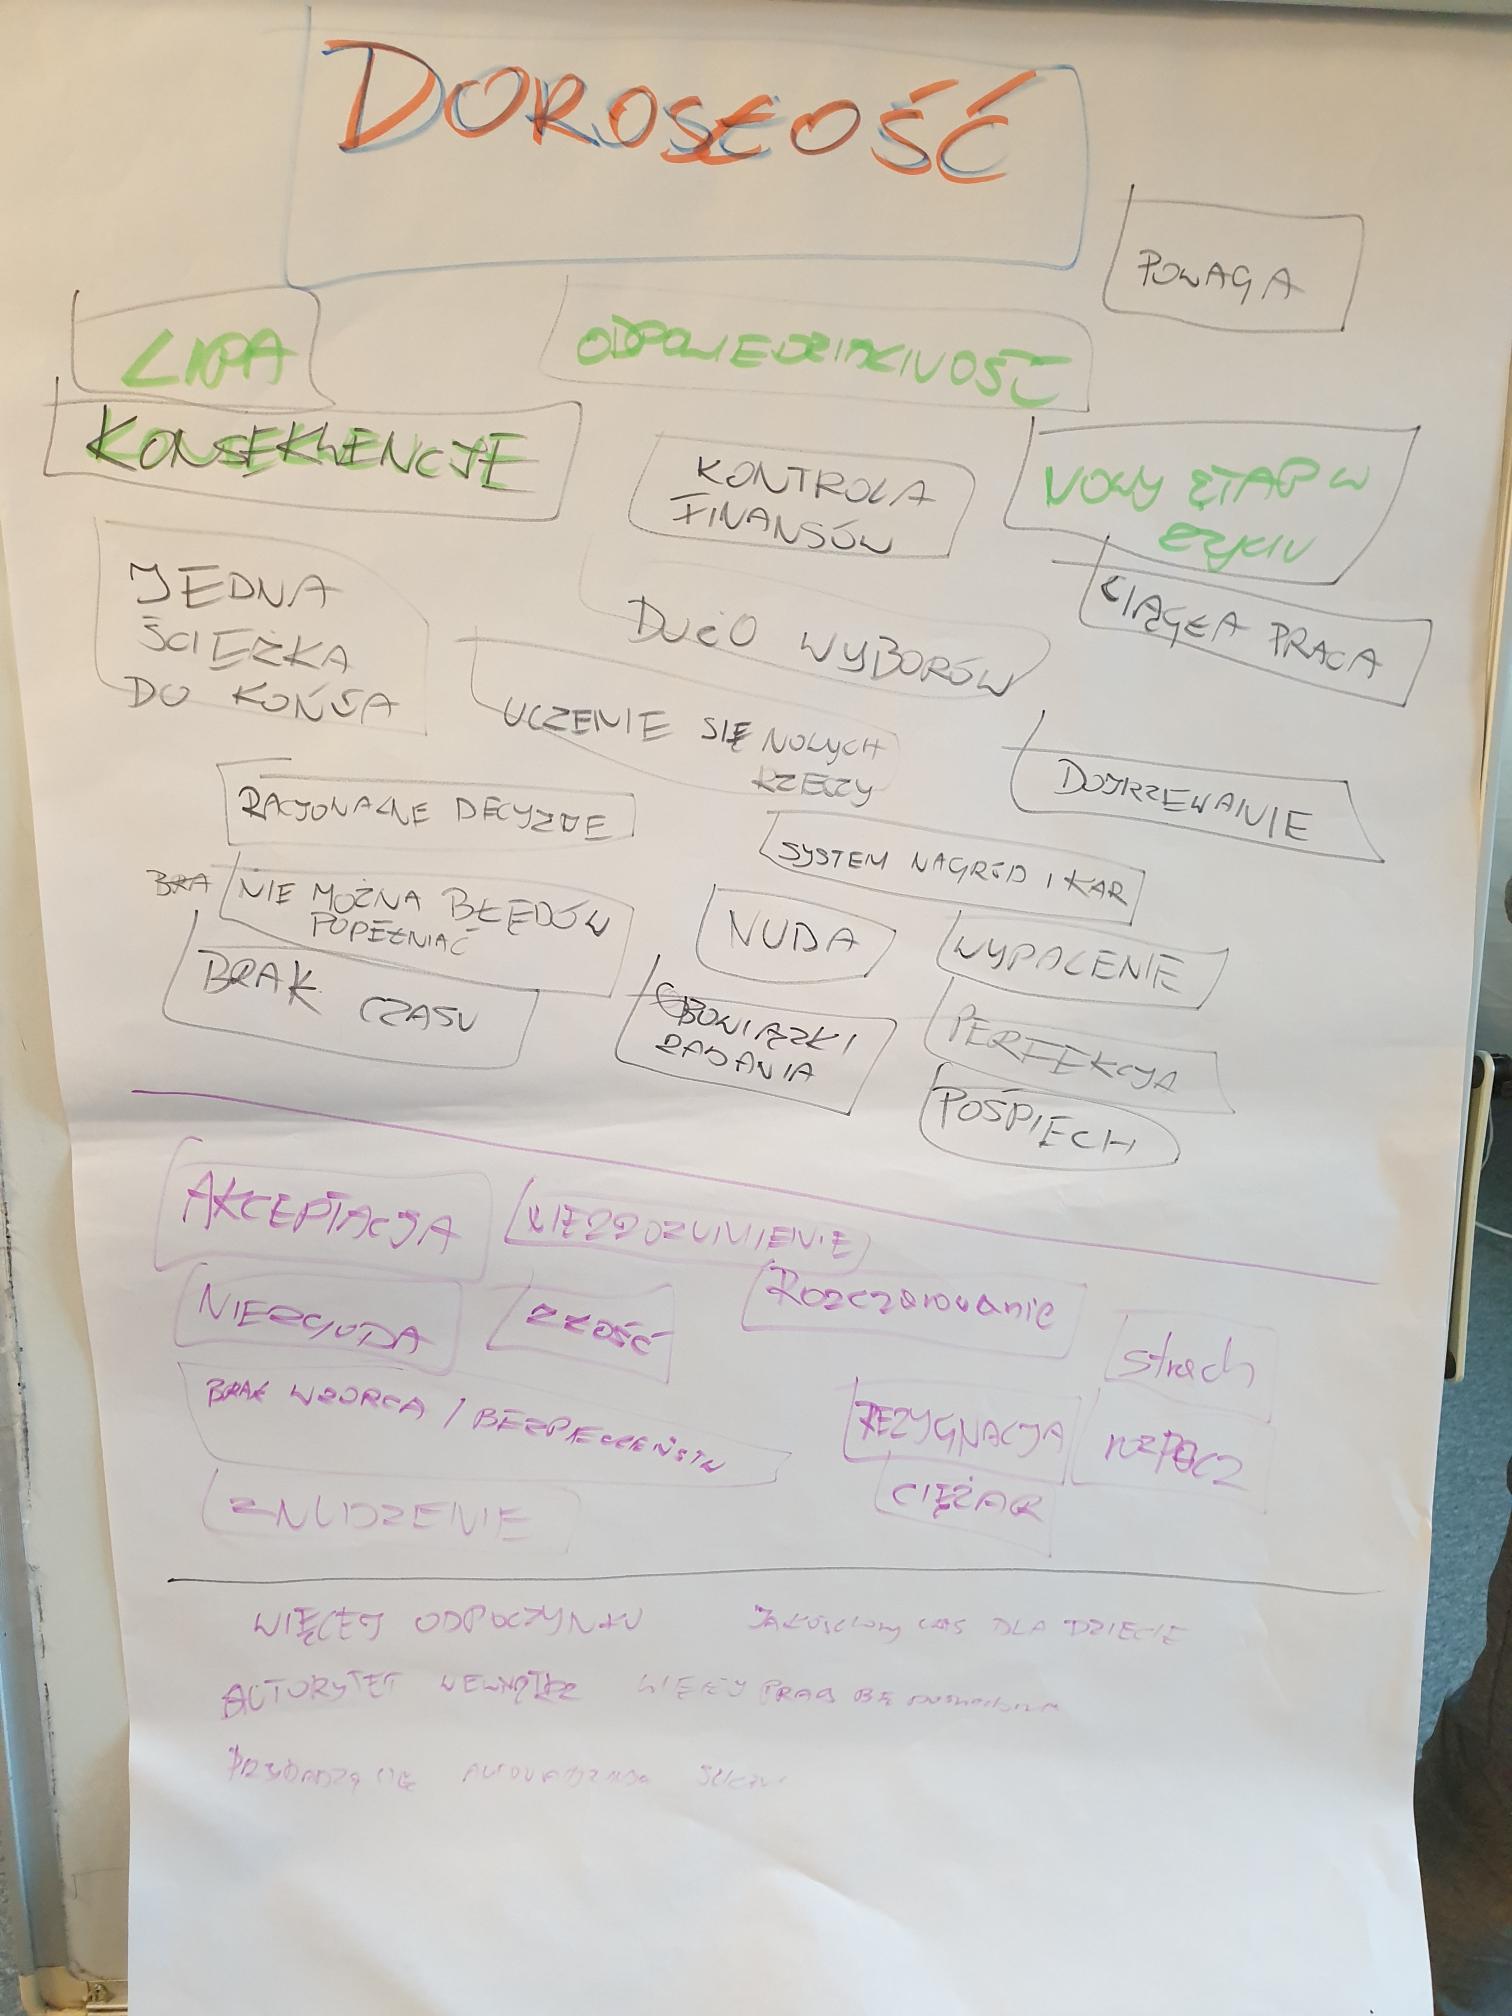 DOROSŁOŚĆ
POWAGA
LIPA
ODPOWIEDZIALNOŚĆ
KONSEKWENCJE
KONTROLA
FINANSÓW
NOWY ETAP W
ŻYCIU
CIĄGŁA PRACA
JEDNA
ŚCIEŻKA
DO KOŃCA
DUŻO WYBORÓW
UCZENIE SIĘ NOWYCH
RZECZY
DOJRZEWANIE
RACJONALNE DECYZJE
SYSTEM NAGRÓD I KAR
BRA NIE MOŻNA BŁĘDÓW
POPEŁNIAĆ
NUDA
WYPALENIE
BRAK CZASU
OBOWIĄZKI
ZADANIA
PERFEKCJA
POŚPIECH
AKCEPTACJA
NIEZROZUMIENIE
NIEZGODA
ZŁOŚĆ
Rozczarowanie
strach
BRAK WZORCA / BEZPIECZEŃSTW
REZYGNACJA
ROZPACZ
CIĘŻAR
ZNUDZENIE
WIĘCEJ ODPOCZYNKU
JAKOŚCIOWY CZAS DLA DZIECIE
AUTORYTET WEWNĄTRZ